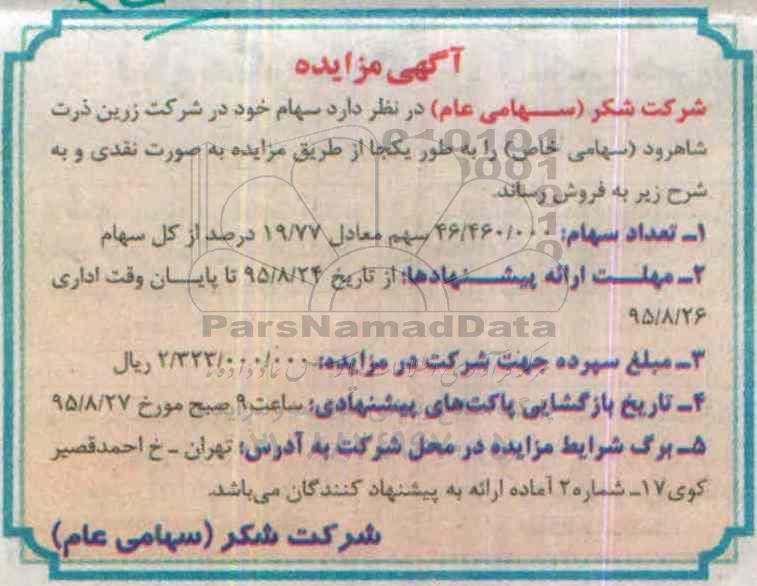 آگهی مزایده
شرکت شکر (سهامی عام) در نظر دارد سهام خود در شرکت زرین ذرت
شاهرود (سهامی خاص) را به طور یکجا از طریق مزایده به صورت نقدی و به
شرح زیر به فروش رساند.
۱ــ تعداد سهام: ۴۶/۴۶۰/۰۰۰ سهم معادل ۱۹/۷۷ درصد از کل سهام
۲ــ مهلت ارائه پیشنهادها: از تاریخ ۹۵/۸/۲۴ تا پایان وقت اداری
۹۵/۸/۲۶
ParsNamadData
۳ــ مبلغ سپرده جهت شرکت در مزایده: ۲/۳۲۳/۰۰۰/۰۰۰ ریال
۴ــ تاریخ بازگشایی پاکت‌های پیشنهادی: ساعت ۹ صبح مورخ ۹۵/۸/۲۷
۵ــ برگ شرایط مزایده در محل شرکت به آدرس: تهران ـ خ احمدقصیر
کوی ۱۷ــ شماره ۲ آماده ارائه به پیشنهاد کنندگان می‌باشد.
شرکت شکر (سهامی عام)